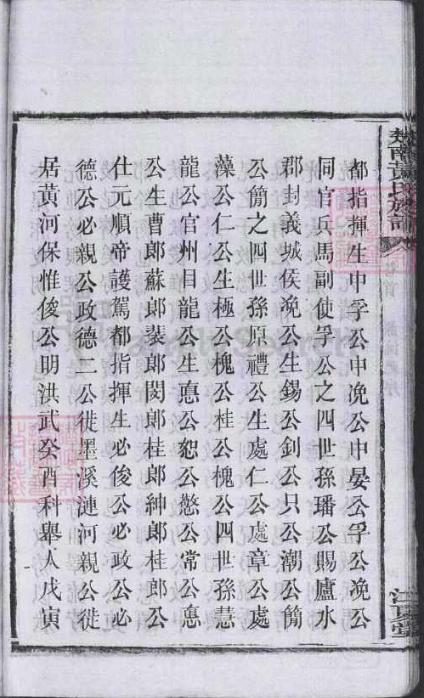 都指揮生中孚公中浼公中晏公孚公浼公
同官兵馬副使孚公之四世孫璠公賜廬水
郡封義城侯浼公生錫公釗公只公潮公簡
公簡之四世孫原禮公生處仁公處章公處
藻公仁公生極公槐公桂公槐公四世孫慧
龍公官州目龍公生悳公恕公憗公常公息
公生曹郎蘇郎裴郎閔郎桂郎紳郎桂郎公
仕元順帝護駕都指揮生必俊公必政公必
德公必親公政德二公徙墨溪漣河親公徙
居黃河保惟俊公明洪武癸酉科舉人戊寅
江夏堂